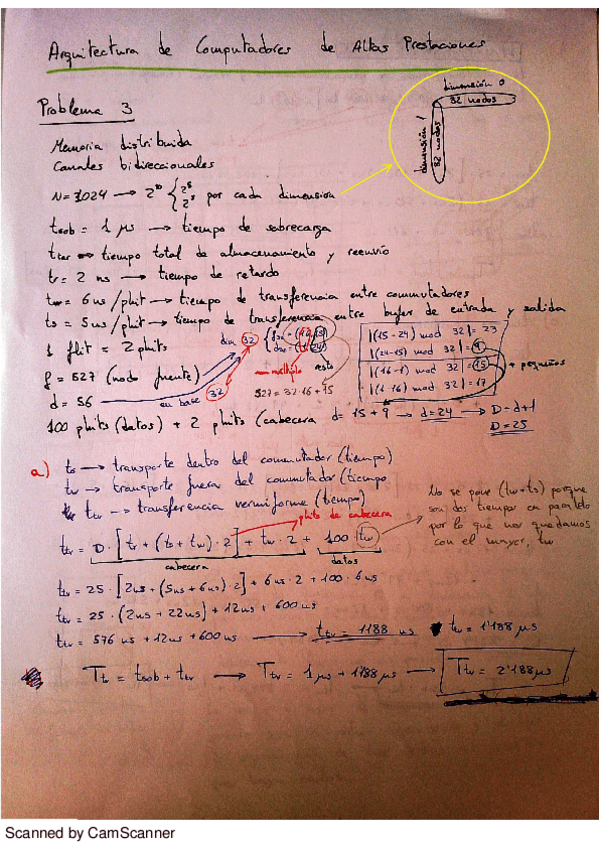 Arquitectura de Computadores de Altas Prestaciones
Problema 3
dimensión 0
32 nodos
dimensión 1
32 nodos
Memoria distribuida
Canales bidireccionales
N=1024 → 2^10 { 2^5 2^5 por cada dimension
tsob = 1 µs → tiempo de sobrecarga
tiempo total de almacenamiento y reenvío
tr = 2 ns → tiempo de retardo
tw = 6 ns/phit → tiempo de transferencia entre conmutadores
ts = 5 ns/phit → tiempo de transferencia entre bufer de entrada y salida
1 flit = 2 phits
f = 527 (nodo fuente)
d = 56
en base 32
dim 32
múltiplo
resto
527 = 32·16 + 15
|(15-24) mod 32| = 23
|(24-15) mod 32| = 9
|(16-1) mod 32| = 15
|(1-16) mod 32| = 17
+ pequeños
100 phits (datos) + 2 phits (cabecera
d = 15 + 9 → d=24 → D = d+1
D = 25
a) ts → transporte dentro del conmutador (tiempo)
tw → transporte fuera del conmutador (tiempo
ttv → transferencia vermiforme (tiempo)
phits de cabecera
No se pone (tw+ts) porque
son dos tiempos en paralelo
por lo que nos quedamos
con el mayor, tw
ttv = D · [tr + (ts + tw) · 2] + tw · 2 + 100 · tw
cabecera
datos
ttv = 25 · [2ns + (5ns + 6ns) · 2] + 6ns · 2 + 100 · 6ns
ttv = 25 · (2ns + 22ns) + 12ns + 600ns
ttv = 576 ns + 12ns + 600 ns → ttv = 1188 ns ttv = 1'188 µs
Ttv = tsob + ttv → Ttv = 1 µs + 1'188 µs → Ttv = 2'188 µs
Scanned by CamScanner